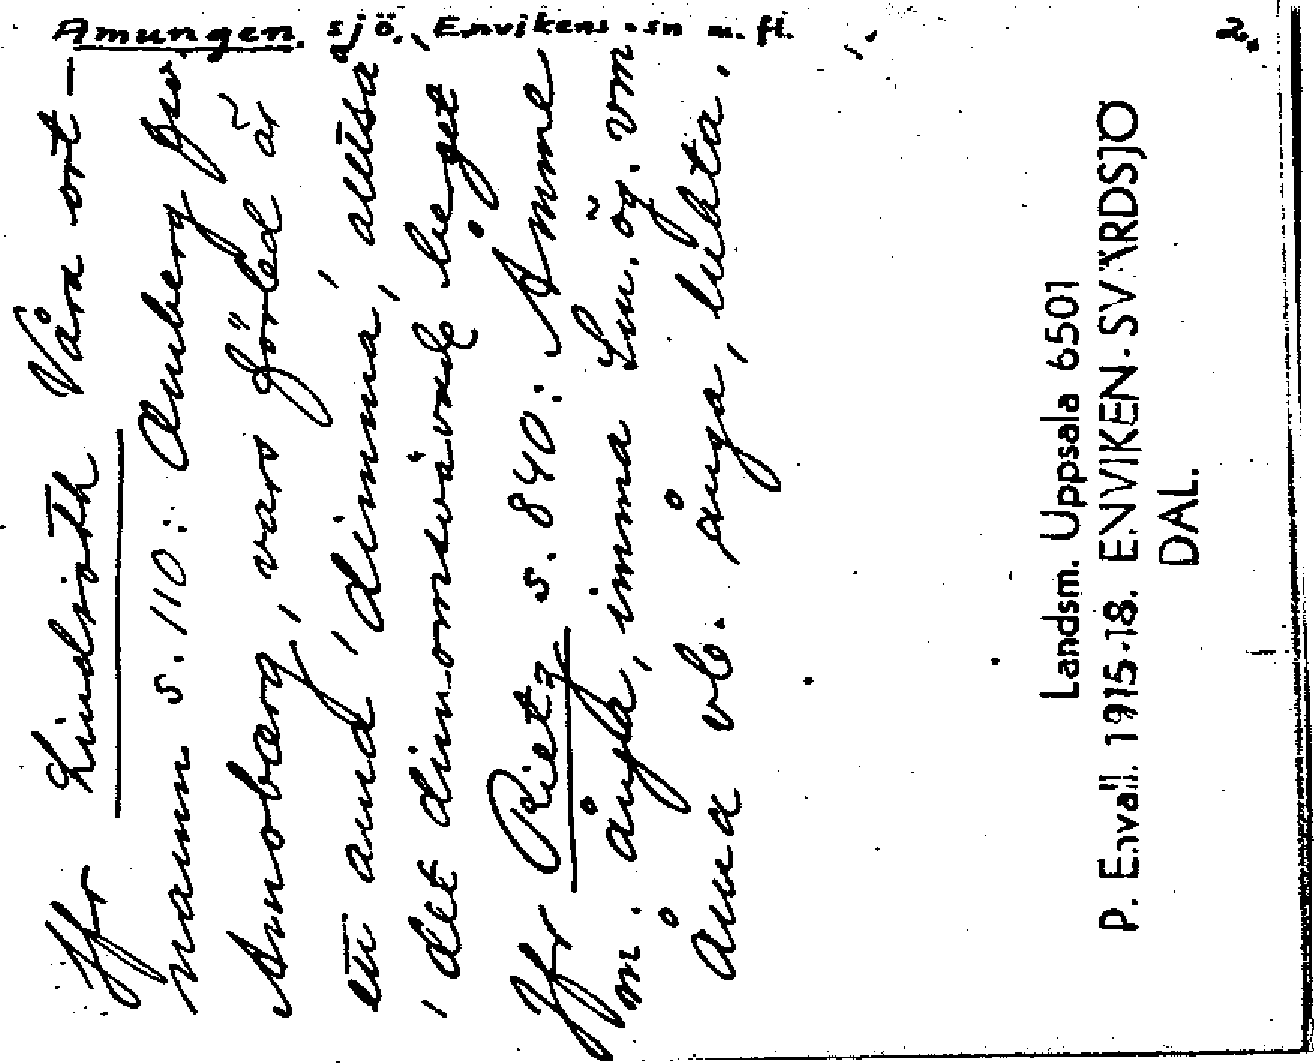 Amungen. sjö. Envikens sn m. fl. 2.
Jfr Lindroth Våra ort-
namn s. 110: Amberg fsv.
Amobærg, vars förled är
ett amd 'dimma', alltså
'det dimomsvävade berget'
Jfr Rietz s. 840: Åmme
m. ånga, imma Sm. ög. vm
Åma vb. ånga, lukta.
Landsm. Uppsala 6501
P. Envall. 1915-18. ENVIKEN-SVÄRDSJÖ
DAL.